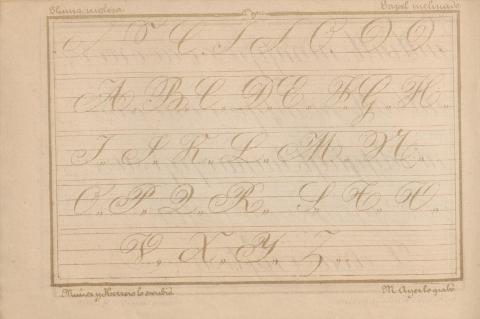 Pluma inglesa
Papel inclinado
C. I I O. O O
A.. B.. C.. D.. E.. F.. G.. H..
I.. J.. K.. L.. M.. N..
O.. P.. Q.. R.. S.. T.. U..
V.. X.. Y.. Z..
Muñoz y Herrero lo escribió
M. Ayer lo grabó